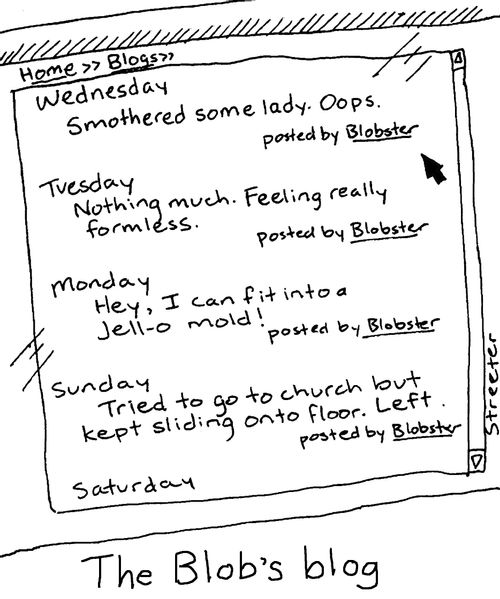 Home >> Blogs>>
Wednesday
Smothered some lady. Oops.
posted by Blobster
Tuesday
Nothing much. Feeling really
formless.
posted by Blobster
Monday
Hey, I can fit into a
Jell-o mold!
posted by Blobster
Sunday
Tried to go to church but
kept sliding onto floor. Left.
posted by Blobster
Saturday
Streeter
The Blob's blog